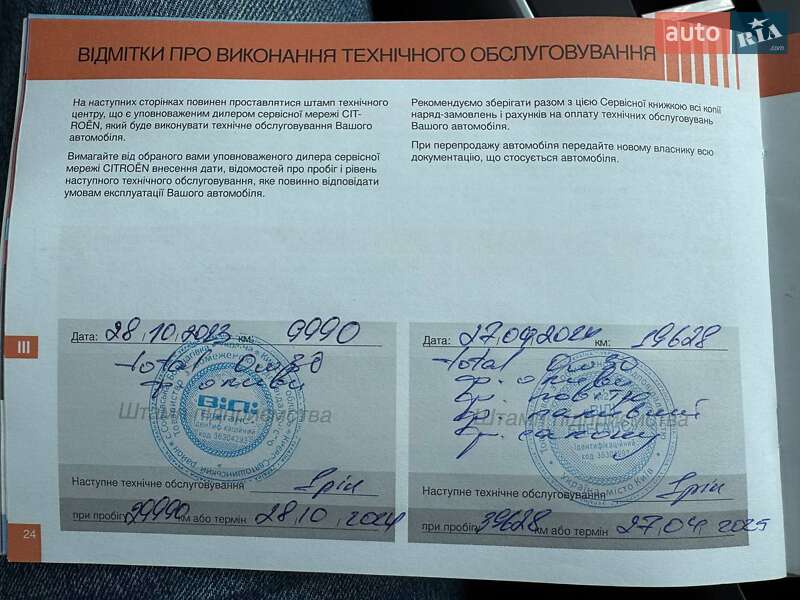 auto RIA.com
ВІДМІТКИ ПРО ВИКОНАННЯ ТЕХНІЧНОГО ОБСЛУГОВУВАННЯ
На наступних сторінках повинен проставлятися штамп технічного
центру, що є уповноваженим дилером сервісної мережі CIT-
ROËN, який буде виконувати технічне обслуговування Вашого
автомобіля.
Вимагайте від обраного вами уповноваженого дилера сервісної
мережі CITROËN внесення дати, відомостей про пробіг і рівень
наступного технічного обслуговування, яке повинно відповідати
умовам експлуатації Вашого автомобіля.
Рекомендуємо зберігати разом з цією Сервісної книжкою всі копії
наряд-замовлень і рахунків на оплату технічних обслуговувань
Вашого автомобіля.
При перепродажу автомобіля передайте новому власнику всю
документацію, що стосується автомобіля.
III
Дата: 28.10.2023 км: 9990
Total 0w30
ф. оливи
Штамп підприємства
ВіДі
Наступне технічне обслуговування 1рік
при пробігу 29990 км або термін 28.10.2024
Дата: 27.09.2024 км: 19628
Total 0w30
ф. оливи
ф. повітря
ф. паливний
ф. салону
Штамп підприємства
Ідентифікаційний
Україна місто Київ
Наступне технічне обслуговування 1рік
при пробігу 39628 км або термін 27.09.2025
24